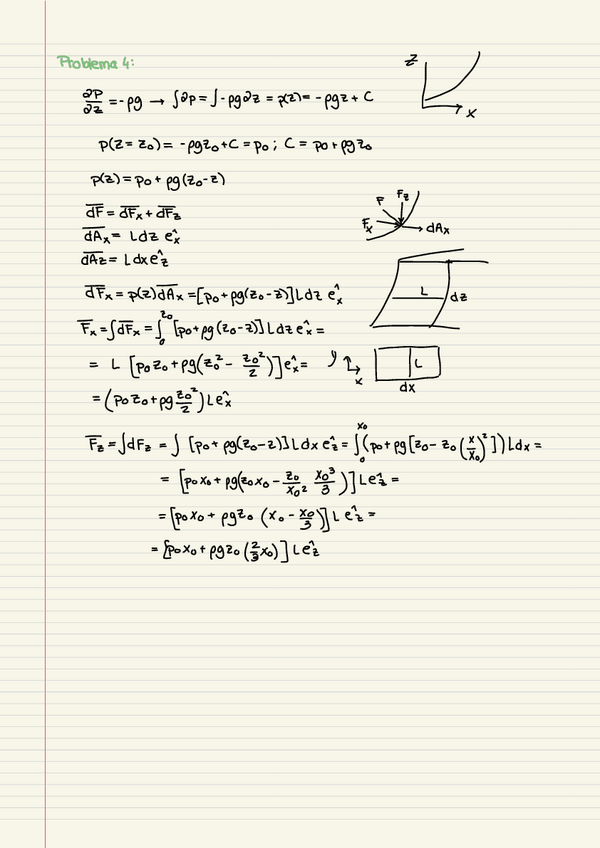 Problema 4:
z
x
∂P/∂z = -ρg → ∫∂p = ∫-ρg∂z = p(z) = -ρgz + C
p(z = z₀) = -ρgz₀ + C = p₀ ; C = p₀ + ρgz₀
p(z) = p₀ + ρg(z₀-z)
P Fz
Fx dAx
dF̅ = dF̅x + dF̅z
dA̅x = L dz êx
dA̅z = L dx êz
L dz
dF̅x = p(z) dA̅x = [p₀ + ρg(z₀-z)] L dz êx
F̅x = ∫dF̅x = ∫₀^z₀ [p₀ + ρg(z₀-z)] L dz êx =
= L [p₀z₀ + ρg(z₀² - z₀²/2)] êx =
y
x
L
dx
= (p₀z₀ + ρg z₀²/2) L êx
F̅z = ∫dFz = ∫ [p₀ + ρg(z₀-z)] L dx êz = ∫₀^x₀ (p₀ + ρg [z₀ - z₀ (x/x₀)²]) L dx =
= [p₀x₀ + ρg(z₀x₀ - z₀/x₀² x₀³/3)] L êz =
= [p₀x₀ + ρgz₀ (x₀ - x₀/3)] L êz =
= [p₀x₀ + ρgz₀ (2/3 x₀)] L êz